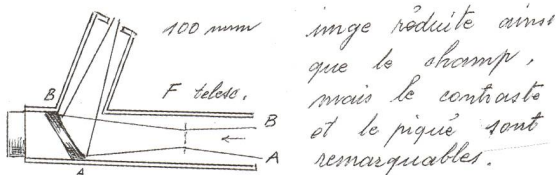 100 mm
F telesc.
B
B
A
A
imge réduite ainsi
que le champ,
mais le contraste
et le piqué sont
remarquables.